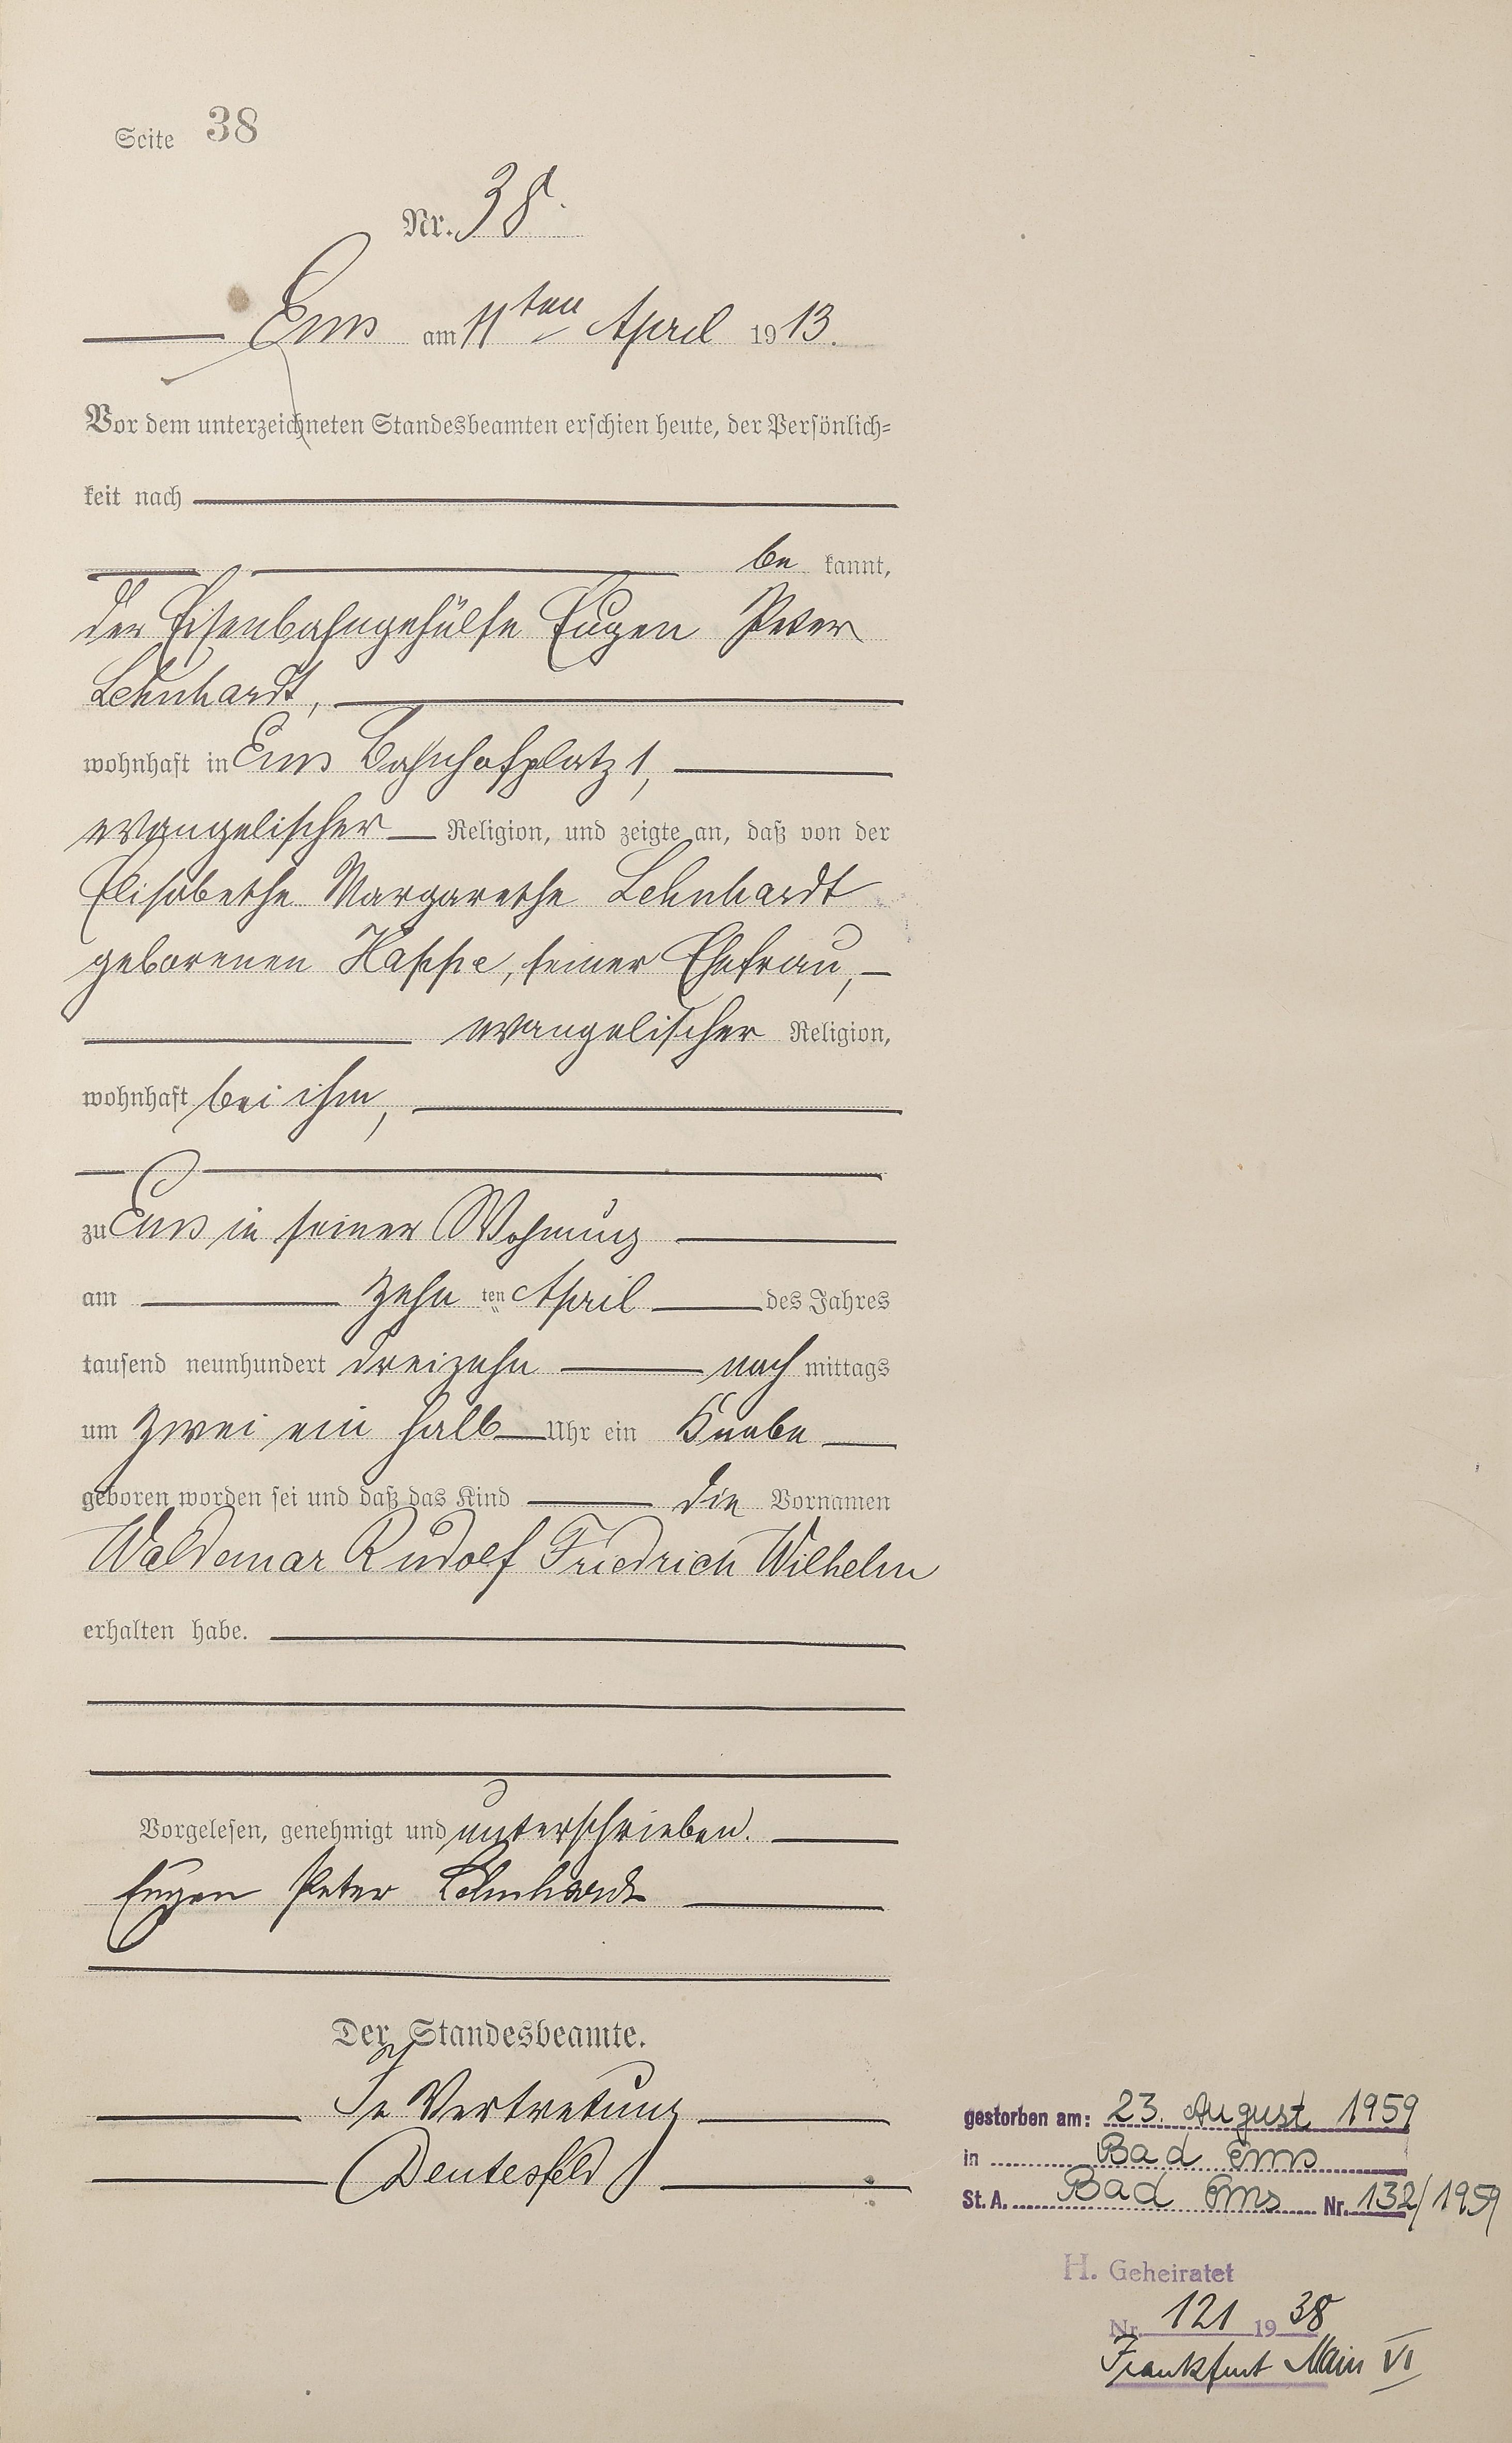 Seite 38
Nr. 38.
Ems am 11ten April 1913.
Vor dem unterzeichneten Standesbeamten erschien heute, der Persönlich-
keit nach
be kannt,
der Eisenbahngehülfe Eugen Peter
Lehnhardt,
wohnhaft in Ems Bahnhofplatz 1,
evangelischer Religion, und zeigte an, daß von der
Elisabethe Margarethe Lehnhardt
geborenen Kappe, seiner Ehefrau,
evangelischer Religion,
wohnhaft bei ihm,
zu Ems in seiner Wohnung
am zehn ten April des Jahres
tausend neunhundert dreizehn nach mittags
um zwei ein halb Uhr ein Knabe
geboren worden sei und daß das Kind die Vornamen
Waldemar Rudolf Friedrich Wilhelm
erhalten habe.
Vorgelesen, genehmigt und unterschrieben.
Eugen Peter Lehnhardt
Der Standesbeamte.
In Vertretung
gestorben am: 23. August 1959
in Bad Ems
St. A. Bad Ems Nr. 132/1959
H. Geheiratet
Nr. 121 1938
Frankfurt Main VI